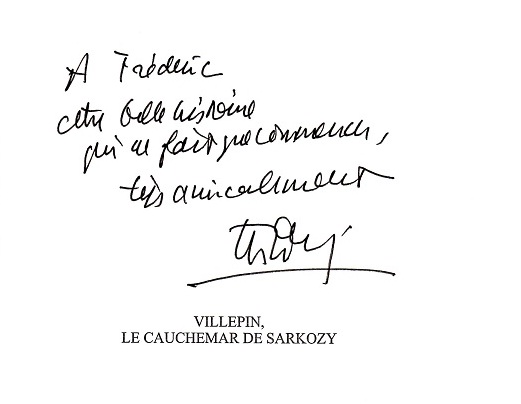 A Frédéric
cette belle histoire
qui ne fait que commencer,
très amicalement
VILLEPIN,
LE CAUCHEMAR DE SARKOZY